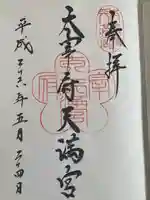 奉拝
太宰府天満宮
平成二十六年五月二十四日